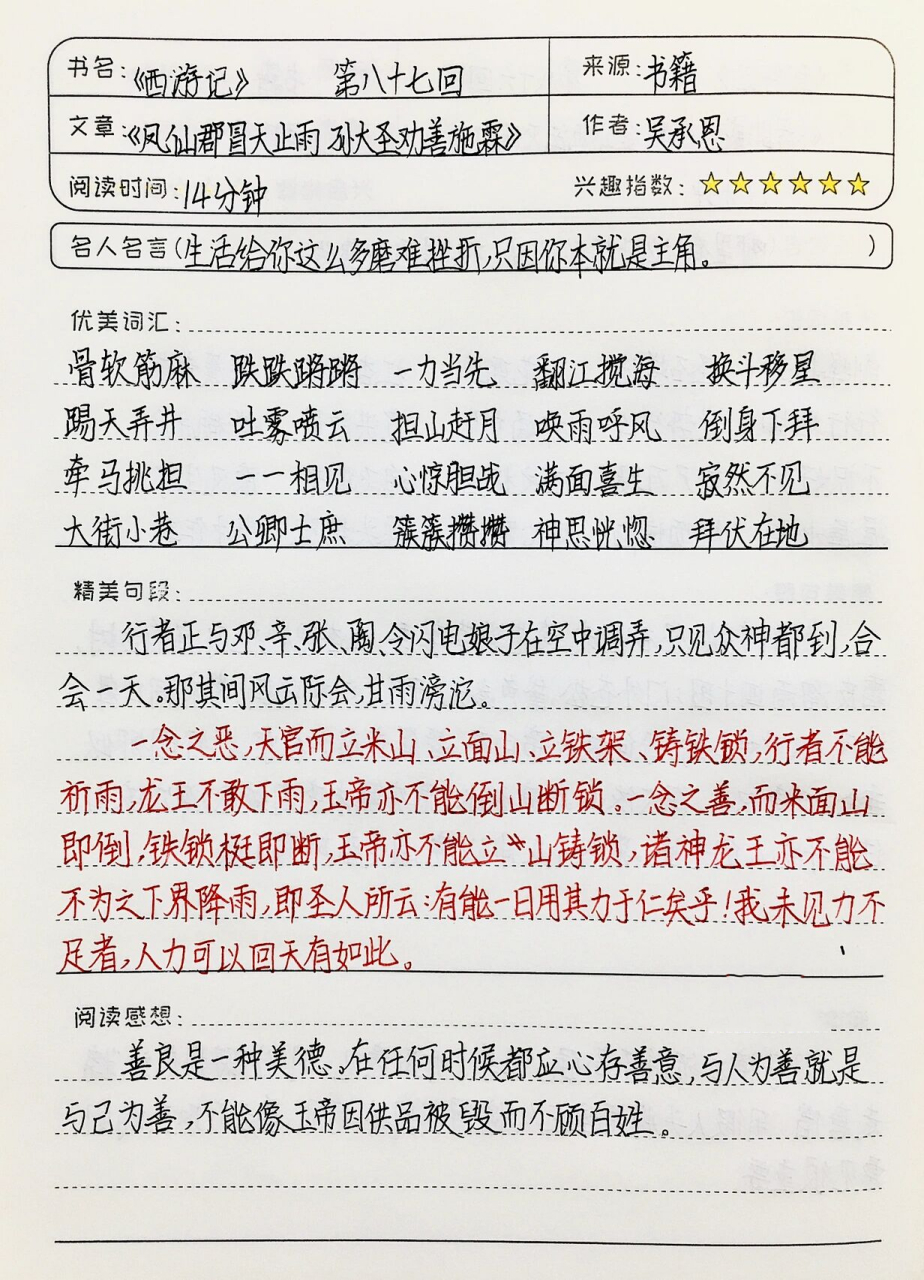 书名:《西游记》 第八十七回 来源:书籍
文章:《凤仙郡冒天止雨 孙大圣劝善施霖》 作者:吴承恩
阅读时间:14分钟 兴趣指数:
名人名言(生活给你这么多磨难挫折,只因你本就是主角。)
优美词汇:
骨软筋麻 跌跌蹡蹡 一力当先 翻江搅海 换斗移星
踢天弄井 吐雾喷云 担山赶月 唤雨呼风 倒身下拜
牵马挑担 一一相见 心惊胆战 满面喜生 寂然不见
大街小巷 公卿士庶 簇簇攒攒 神思恍惚 拜伏在地
精美句段:
行者正与邓、辛、张、陶、令闪电娘子在空中调弄,只见众神都到,合
会一天。那其间风云际会,甘雨滂沱。
一念之恶,天宫而立米山、立面山、立铁架、铸铁锁,行者不能
祈雨,龙王不敢下雨,玉帝亦不能倒山断锁。一念之善,而米面山
即倒,铁锁梃即断,玉帝亦不能立山铸锁,诸神龙王亦不能
不为之下界降雨,即圣人所云:有能一日用其力于仁矣乎!我未见力不
足者,人力可以回天有如此。
阅读感想:
善良是一种美德。在任何时候都应心存善意,与人为善就是
与己为善,不能像玉帝因供品被毁而不顾百姓。